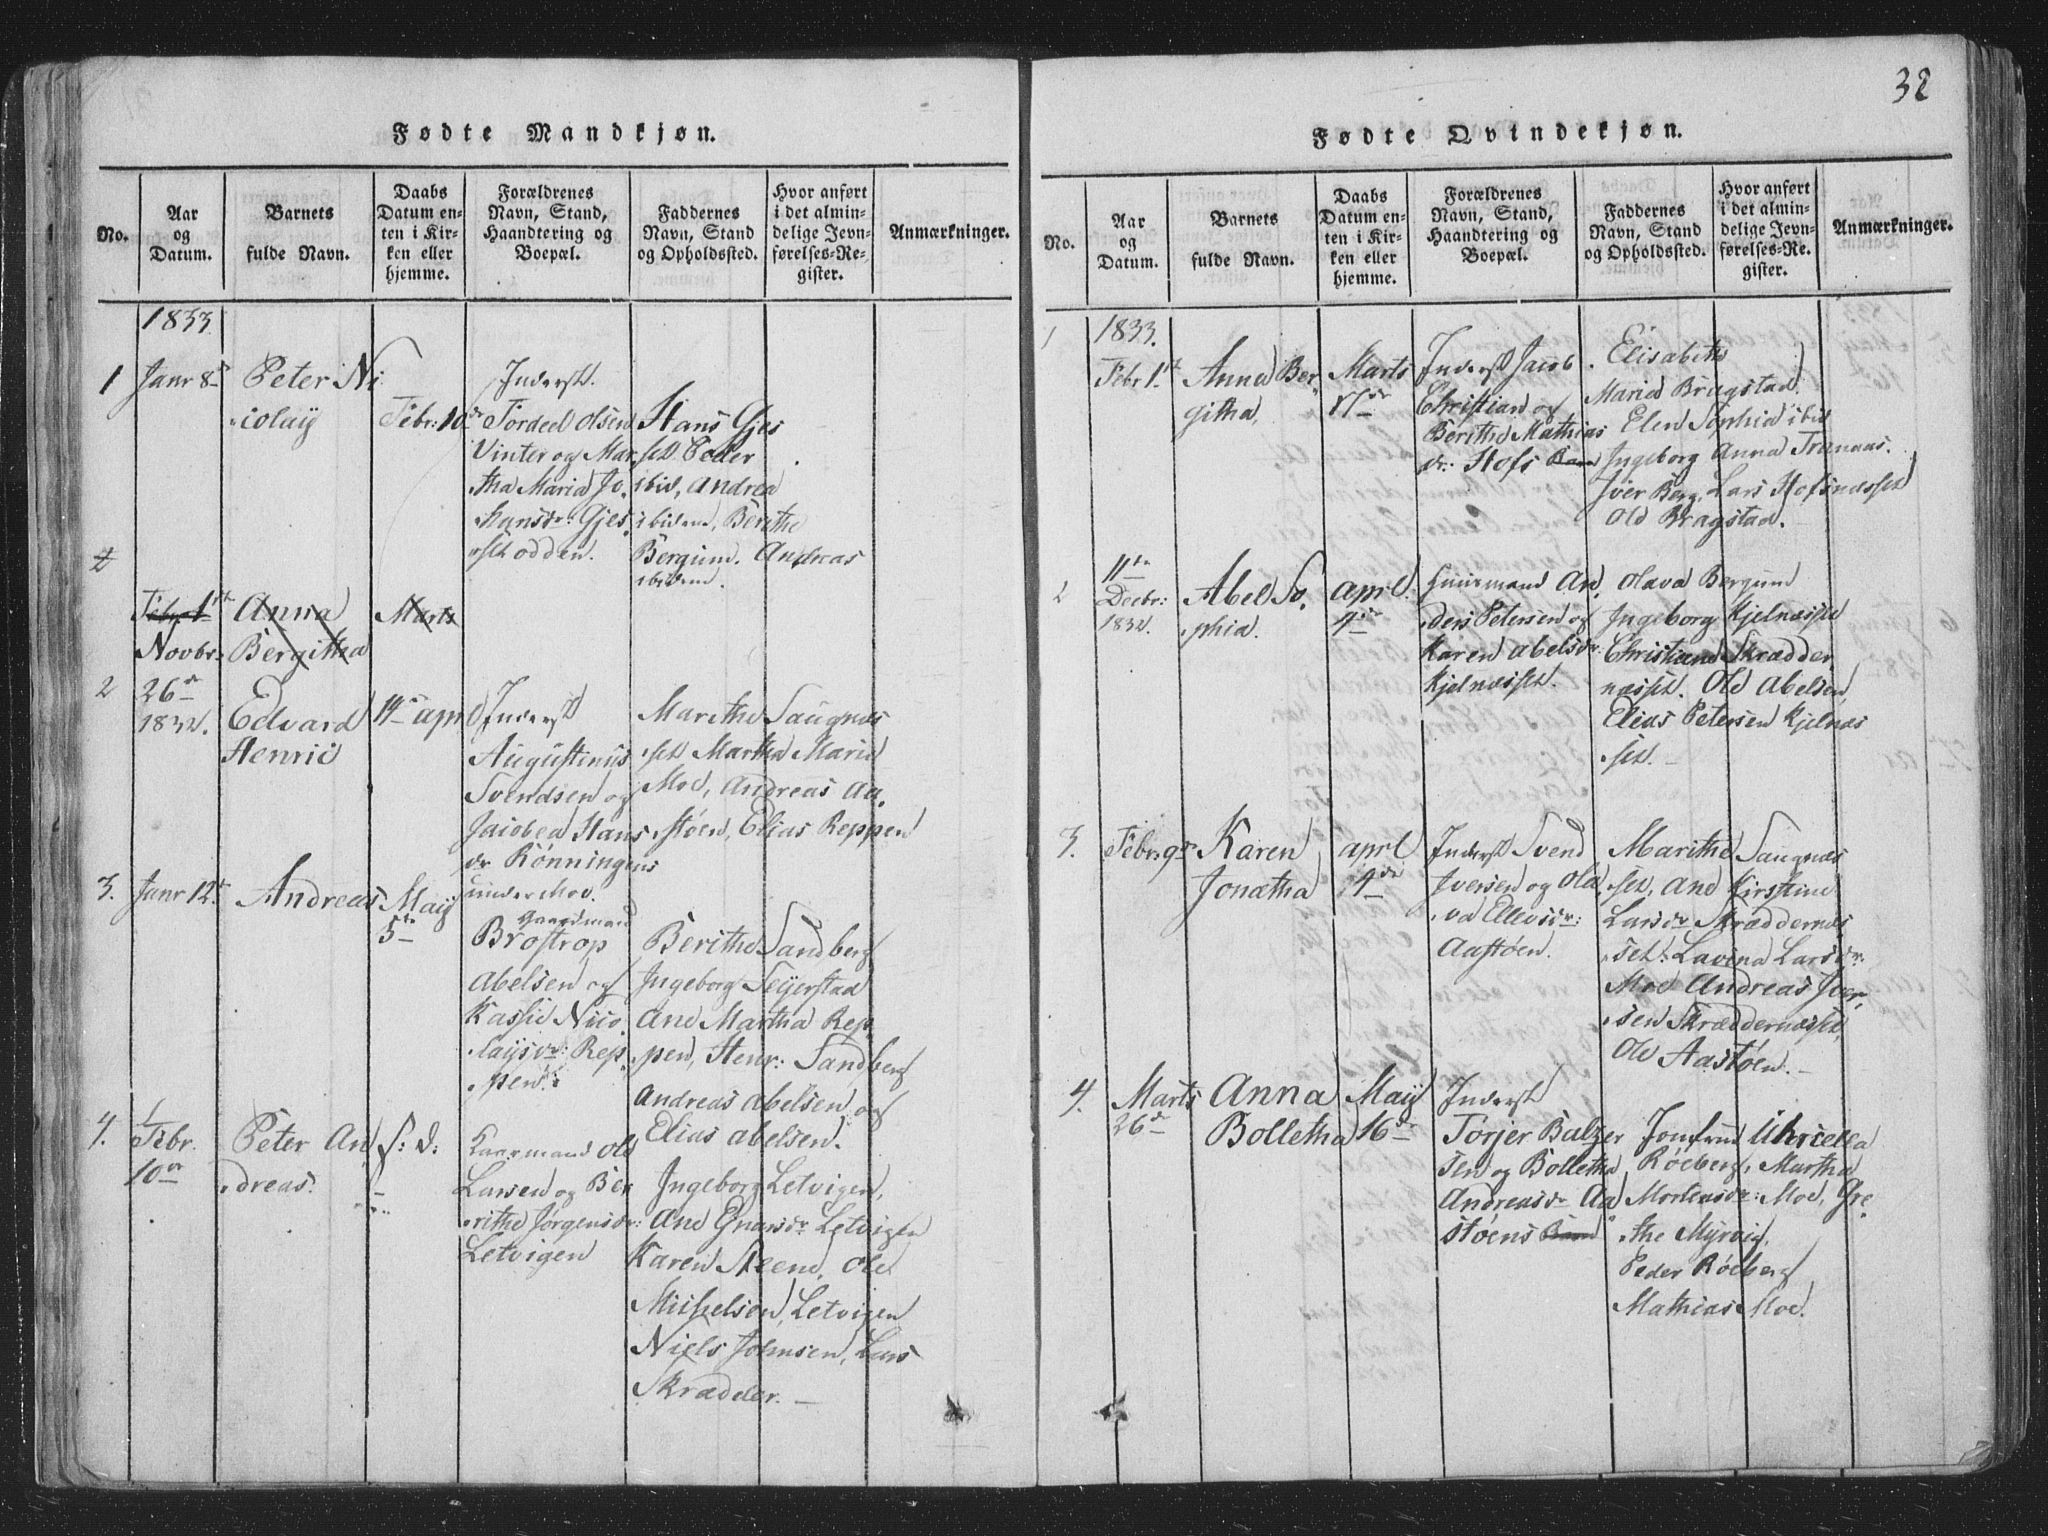 32
Fødte Mandkjøn.
No.
Aar
og
Datum.
Barnets
fulde Navn.
Daabs
Datum en-
ten i Kir-
ken eller
hjemme.
Forældrenes
Navn, Stand,
Haandtering og
Boepæl.
Faddernes
Navn, Stand
og Opholdssted.
Hvor anført
i det almin-
delige Jevn-
førelses-Re-
gister.
Anmærkninger.
1833
1
Janr 8
Peter Ni
colaÿ
Febr: 10de
Inderst.
Tordeel Olsen
Vinter og Mar,
tha Maria Jo,
hansdr: Gjes,
set odden.
Hans Gjes
set Peder
ibid, Andrea
ibidem, Berithe
Bergum. Andreas
ibidem.
2
Feby 1st
Anna
Bergitha
Marts
2
Novbr.
26de
1832.
Edvard
Henric
14 april
Inderst
Augustinus
Svendsen og
Jacobea Hans
dr Rønningens
under Moe.
Marithe Saugnæs
set Martha Marie
Moe, Andreas Aa,
støen, Elias Reppen
3.
Janr 12t
Andreas
Maÿ
5te
Gaardmand
Brostrop
Abelsen og
Kassie Nico
laÿsdr: Rep,
pen:
Berithe Sandberg
Ingeborg Seÿerstad
Ane Martha Rep,
pen, Henr: Sandberg
Andreas Abelsen og
Elias Abelsen.
4.
Febr.
10de
Peter An
dreas.
s: D:
Ole
Larsen og Ber
rithe Jørgensdr:
Letvigen
Ingeborg Letvigen,
Ane Gnarsdr Letvigen
Karen Steene, Ole
Michelsen, Letvigen
Niels Johnsen, Lars
Skrædder.
Fødte Qvindekjøn.
No.
Aar
og
Datum.
Barnets
fulde Navn.
Daabs
Datum en-
ten i Kir-
ken eller
hjemme.
Forældrenes
Navn, Stand,
Haandtering og
Boepæl.
Faddernes
Navn, Stand
og Opholdssted.
Hvor anført
i det almin-
delige Jevn-
førelses-Re-
gister.
Anmærkninger.
1833.
1
Febr 1st
Anna Ber
githa,
Marts
17de
Inderst Jacob
Christian og
Berithe Mathias
dr: Hofs Barn
Elisabeth
Marie Bragstad.
Elen Sophia ibid
Ingeborg Anna Tranaas.
Iver Berg, Lars Hofsnæsset
Ole Bragstad.
2
11te
Decbr:
1832.
Abel So,
phia.
april
4de
Huusmand An,
ders Petersen og
Karen Abelsdr:
Kjelnæsset.
Olava Bergum
Ingeborg Kjelnæsset
Christiane Skrædder
næsset. Ole Abelsen,
Elias Petersen Kjelnæs
set. —
3.
Febr: 9de
Karen
Jonetha
april
14de
Inderst Svend
Iversen og Ola
va Ellevsdr:
Aastøen.
Marithe Saugnæs
set, Ane Kirstine
Larsdr Skræddernæs
set. Lavina Larsdr:
Moe Andreas Iver,
sen Skræddernæsset,
Ole Aastøen. —
4.
Marts
26de
Anna
Bolletha
Maÿ
16de
Inderst
Torjer Balzer
sen og Bolletha
Andreasdr Aa
støens Barn
Jomfrue
Røeberg, Martha
Mortensdr: Moe, Gre,
the Mÿrvig,
Peder Røeberg
Mathias Moe.